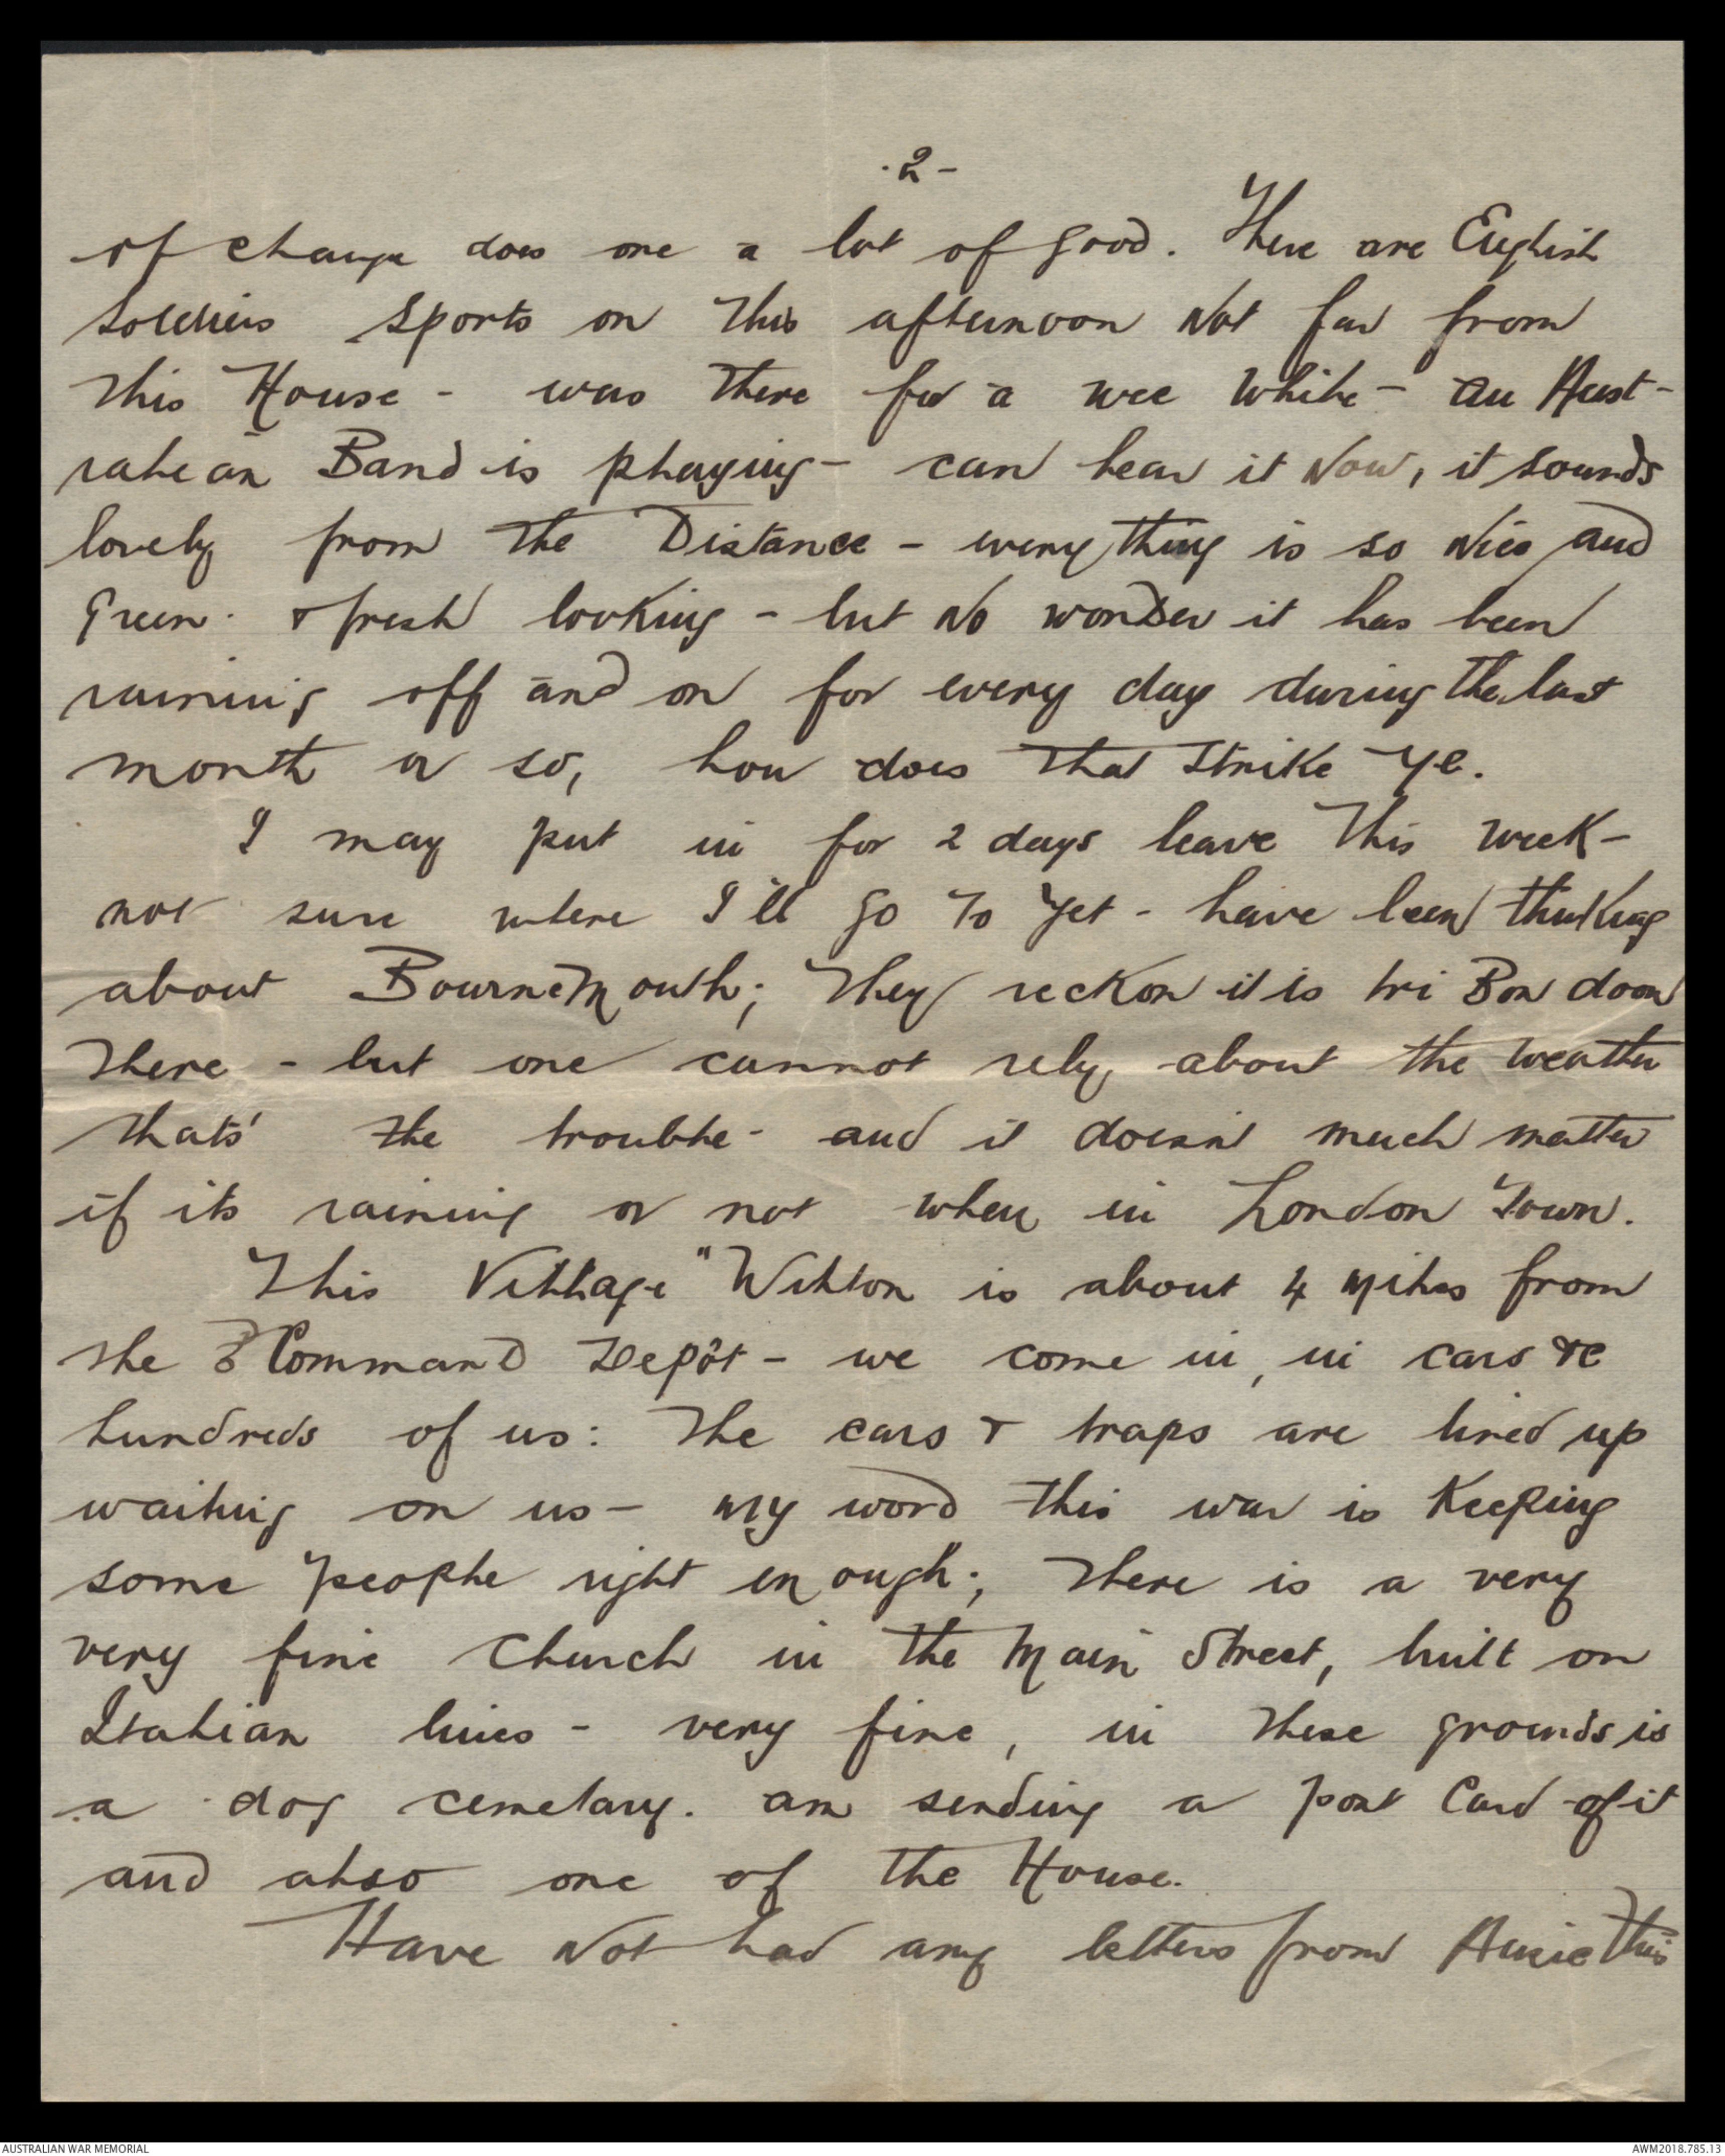 -2-
of change does one a lot of good. There are English
soldiers sports on this afternoon Not far from
this House - was there for a wee while - an Aust-
ralian Band is playing - can hear it Now, it sounds
lovely from the Distance - everything is so Nice and
Green & fresh looking - but No wonder it has been
raining off and on for every day during the last
month or so, how does that strike ye.
I may put in for 2 days leave this week -
not sure where I'll go to yet - have been thinking
about Bournemouth; they reckon it is tri Bon doon
there - but one cannot rely about the weather
thats' the trouble - and it doesn't much matter
if its raining or not when in London Town.
This Village "Wilton is about 4 miles from
the 3 Command Depôt - we come in, in cars &c
hundreds of us: the cars & traps are lined up
waiting on us - my word this war is Keeping
some people right enough; there is a very
very fine Church in the Main Street, built on
Italian lines - very fine, in these grounds is
a dog cemetary. am sending a post Card of it
and also one of the House.
Have Not had any letters from Ausie this
AUSTRALIAN WAR MEMORIAL
AWM2018.785.13